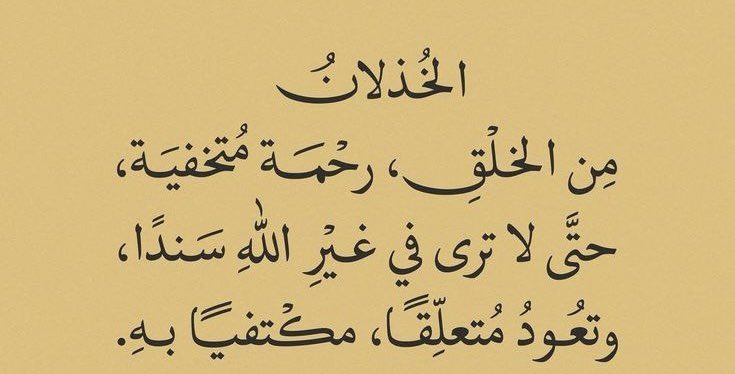 الخُذلانُ
مِن الخلْقِ، رحْمَة مُتخفيَة،
حتَّى لا ترى في غيْرِ اللهِ سَندًا،
وتعُودُ مُتعلِّقًا، مكْتفيًا بهِ.